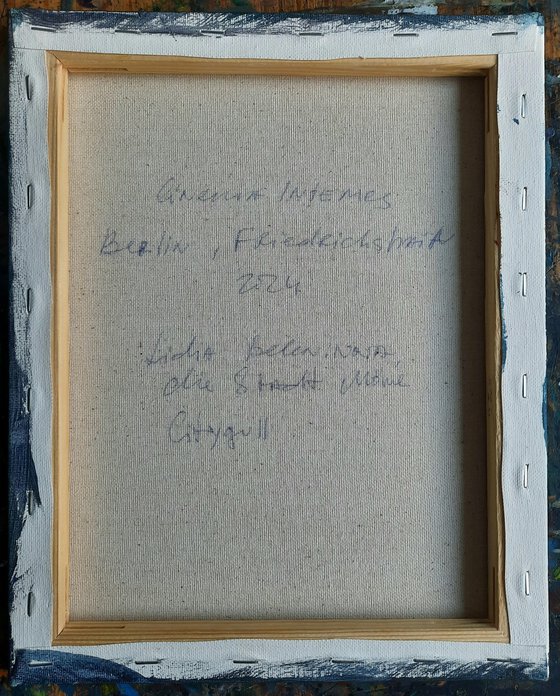 Cinema Intemes
Berlin, Friedrichshain
2024
Lidia
die Stadt Möwe
Citygull